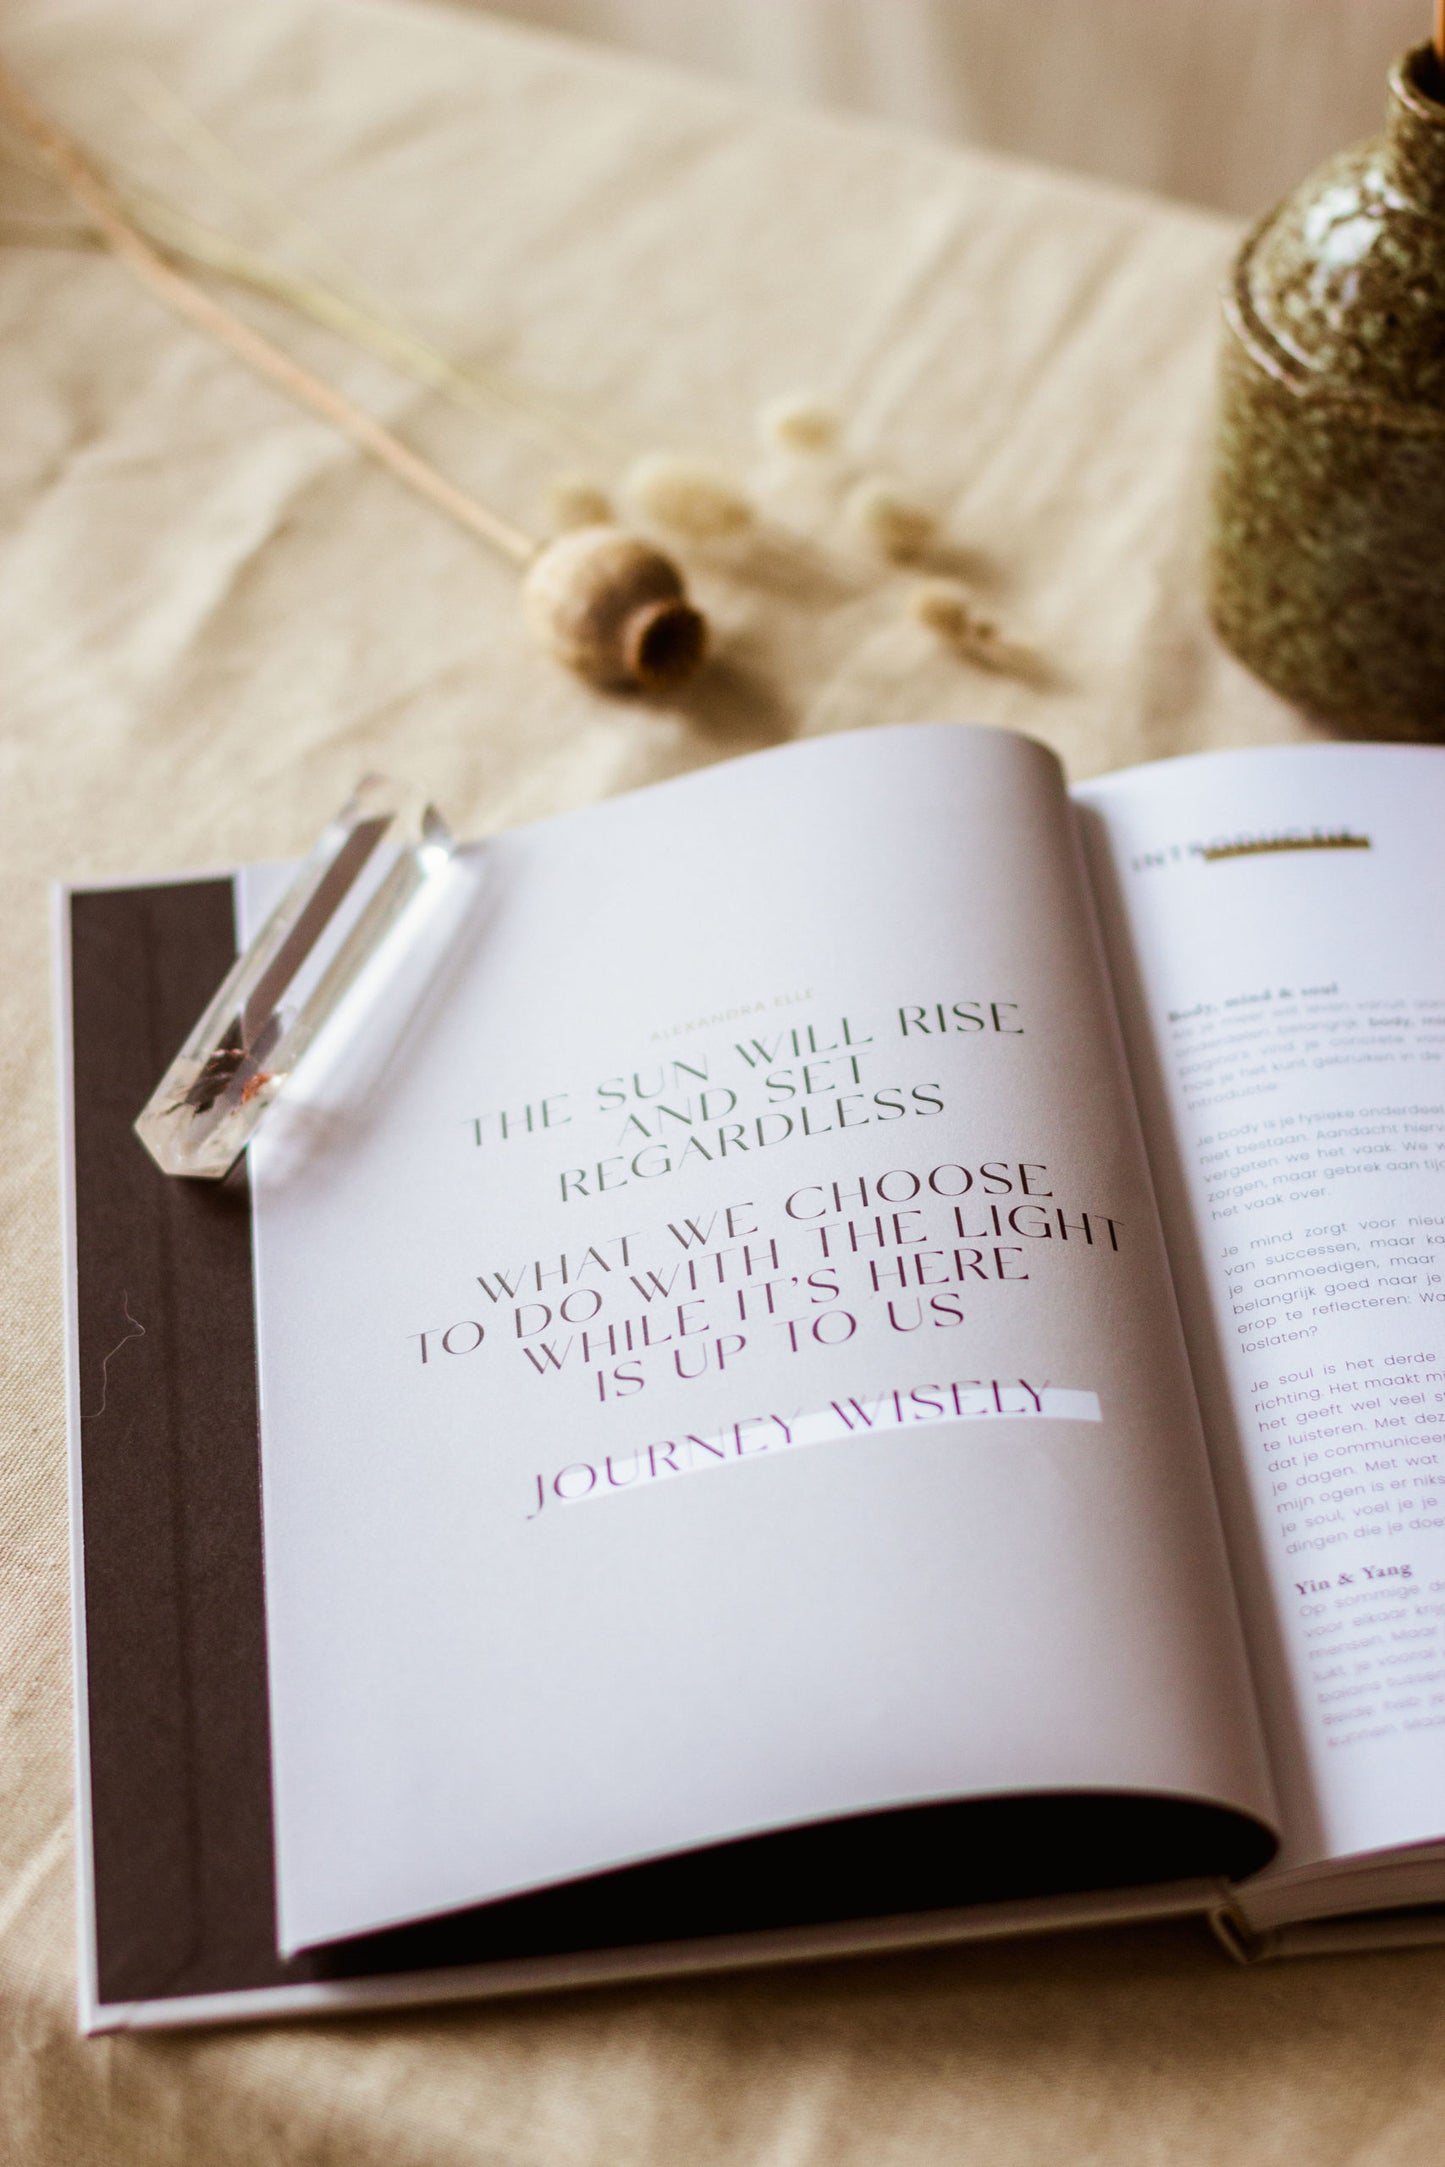 ALEXANDRA ELLE
THE SUN WILL RISE
AND SET
REGARDLESS
WHAT WE CHOOSE
TO DO WITH THE LIGHT
WHILE IT'S HERE
IS UP TO US
JOURNEY WISELY
INTRODUCTIE
Body, mind & soul
Als je meer wilt leven vanuit
onderdelen belangrijk: body,
pagina's vind je concrete
hoe je het kunt gebruiken in de
introductie.
Je body is je fysieke onderdeel,
niet bestaan. Aandacht
vergeten we het vaak. We
zorgen, maar gebrek aan
het vaak over.
Je mind zorgt voor
van successen, maar
je aanmoedigen, maar
belangrijk goed naar je
erop te reflecteren:
loslaten?
Je soul is het derde
richting. Het maakt
het geeft wel veel
te luisteren. Met
dat je
je dagen. Met wat
mijn ogen is er
je soul, voel je je
dingen die je
Yin & Yang
Op sommige
voor elkaar
mensen. Maar
lukt je vooral
balans
Beide heb je
kunnen.